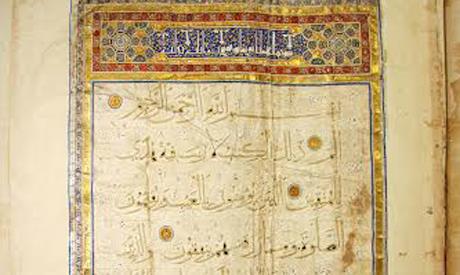 بسم الله الرحمن الرحيم
الم ذلك الكتب لا ريب فيه هدى
للمتقين الذين يؤمنون بالغيب ويقيمون
الصلوة ومما رزقنهم ينفقون والذين